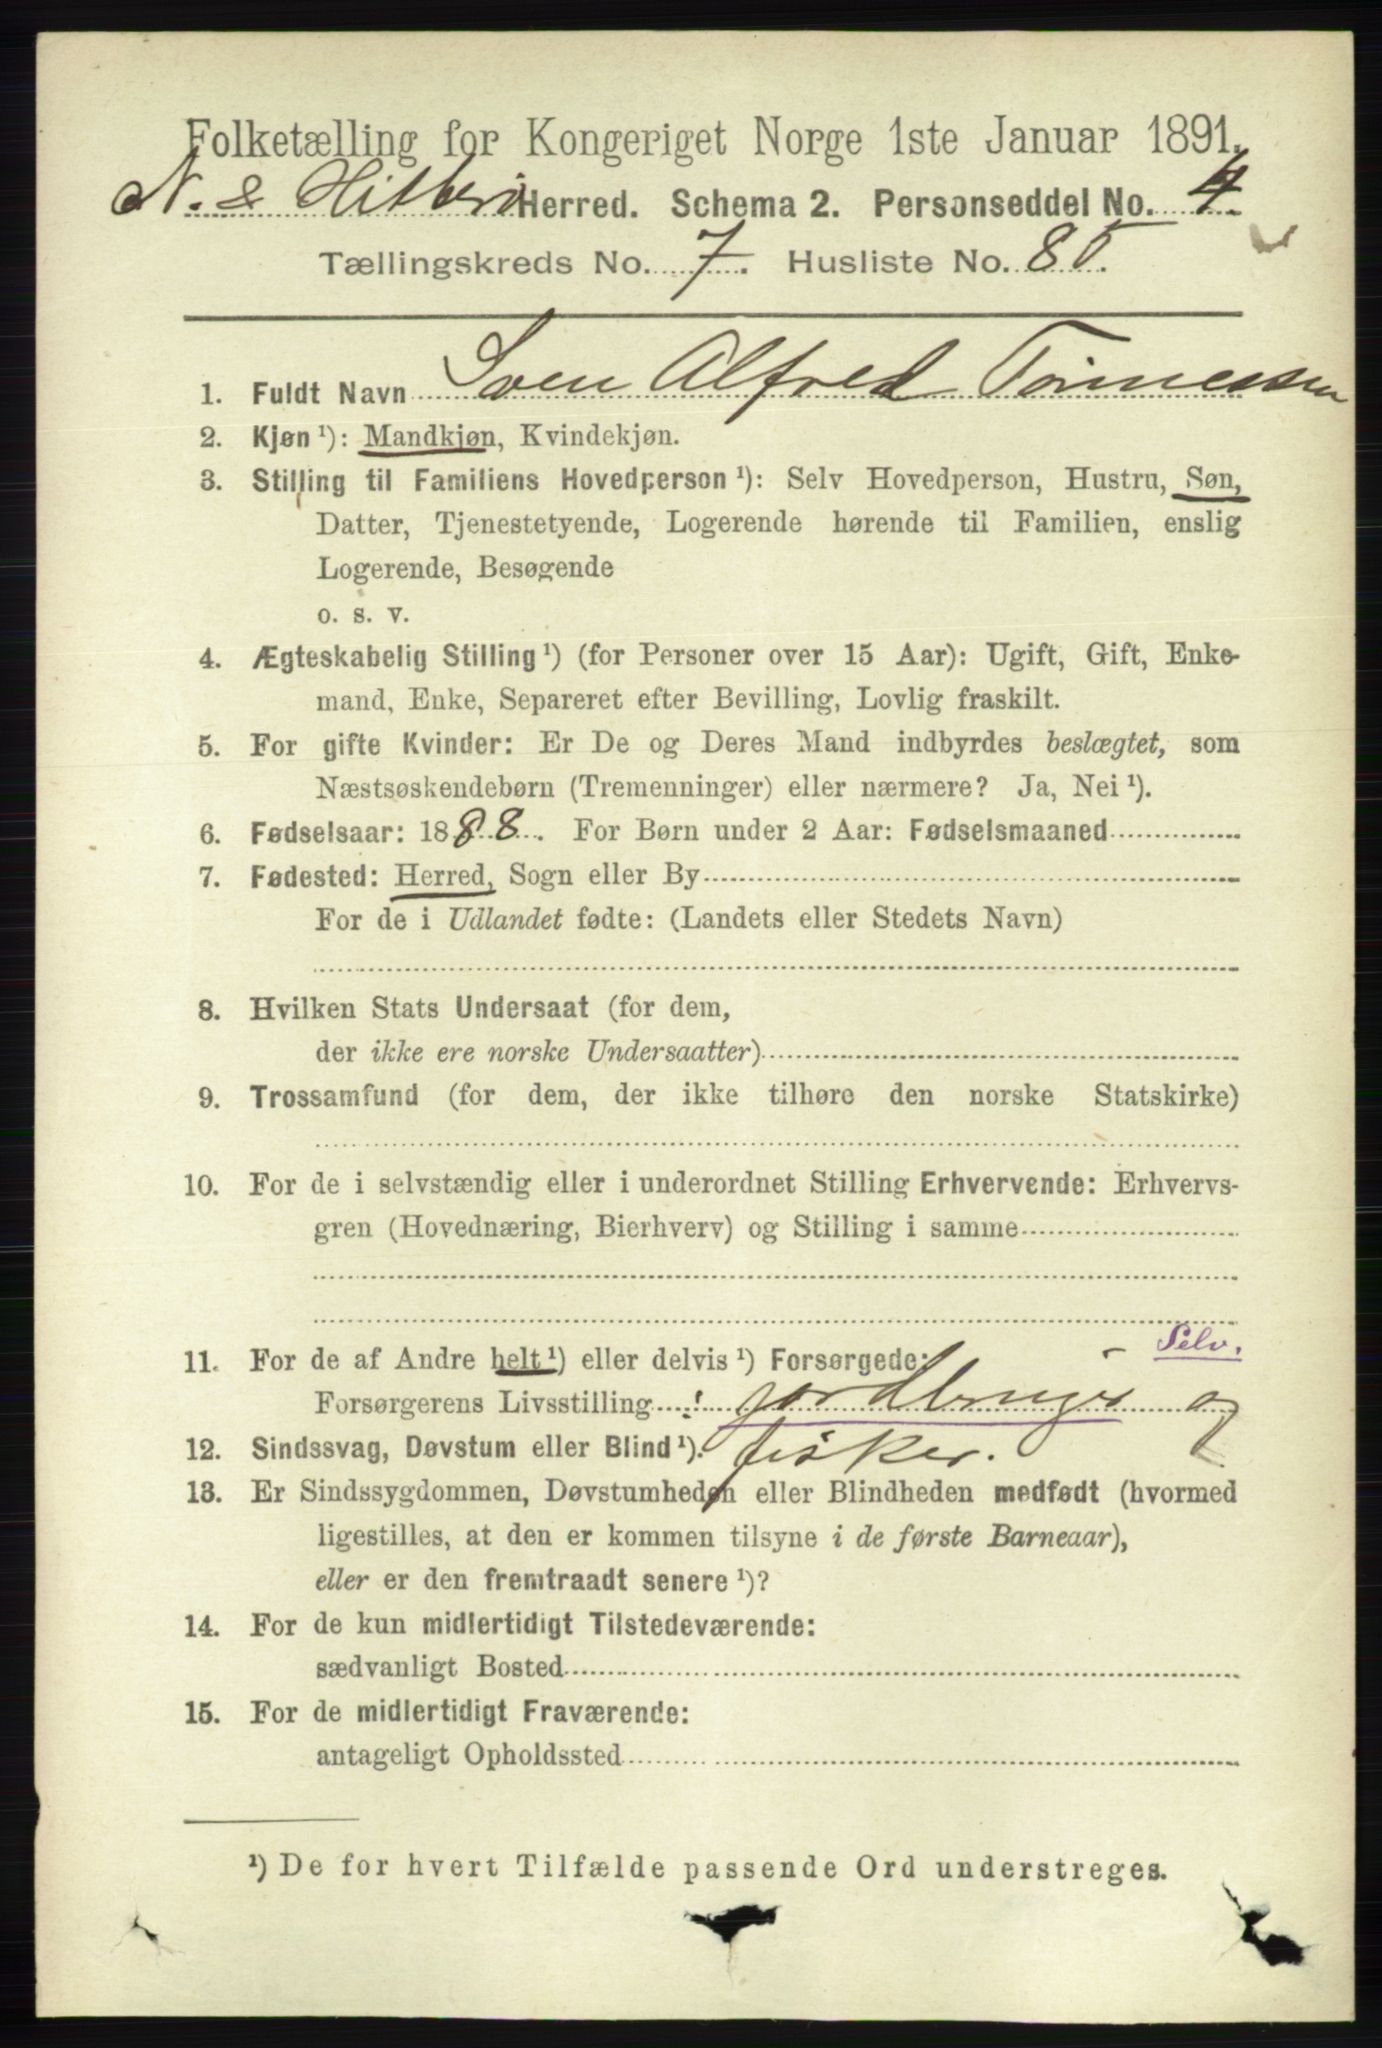 Folketælling for Kongeriget Norge 1ste Januar 1891.
N. & Hitterø Herred. Schema 2. Personseddel No. 4
Tællingskreds No. 7. Husliste No. 85.
1. Fuldt Navn Sven Alfred Tønnessen
2. Kjøn ¹): Mandkjøn, Kvindekjøn.
3. Stilling til Familiens Hovedperson ¹): Selv Hovedperson, Hustru, Søn,
Datter, Tjenestetyende, Logerende hørende til Familien, enslig
Logerende, Besøgende
o. s. v.
4. Ægteskabelig Stilling ¹) (for Personer over 15 Aar): Ugift, Gift, Enke-
mand, Enke, Separeret efter Bevilling, Lovlig fraskilt.
5. For gifte Kvinder: Er De og Deres Mand indbyrdes beslægtet, som
Næstsøskendebørn (Tremenninger) eller nærmere? Ja, Nei ¹).
6. Fødselsaar: 1888. For Børn under 2 Aar: Fødselsmaaned
7. Fødested: Herred, Sogn eller By
For de i Udlandet fødte: (Landets eller Stedets Navn)
8. Hvilken Stats Undersaat (for dem,
der ikke ere norske Undersaatter)
9. Trossamfund (for dem, der ikke tilhøre den norske Statskirke)
10. For de i selvstændig eller i underordnet Stilling Erhvervende: Erhvervs-
gren (Hovednæring, Bierhverv) og Stilling i samme
Selv.
11. For de af Andre helt ¹) eller delvis ¹) Forsørgede:
Forsørgerens Livsstilling: jordbrugs- og
12. Sindssvag, Døvstum eller Blind ¹). fisker.
13. Er Sindssygdommen, Døvstumheden eller Blindheden medfødt (hvormed
ligestilles, at den er kommen tilsyne i de første Barneaar),
eller er den fremtraadt senere ¹)?
14. For de kun midlertidigt Tilstedeværende:
sædvanligt Bosted
15. For de midlertidigt Fraværende:
antageligt Opholdssted
¹) De for hvert Tilfælde passende Ord understreges.